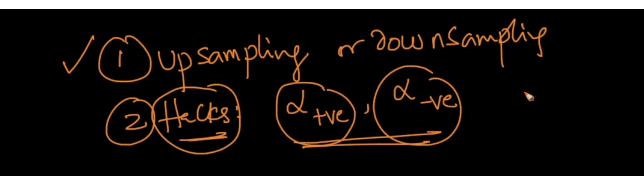 ✓ ① upsampling or downsampling
② Hacks: α+ve, α-ve